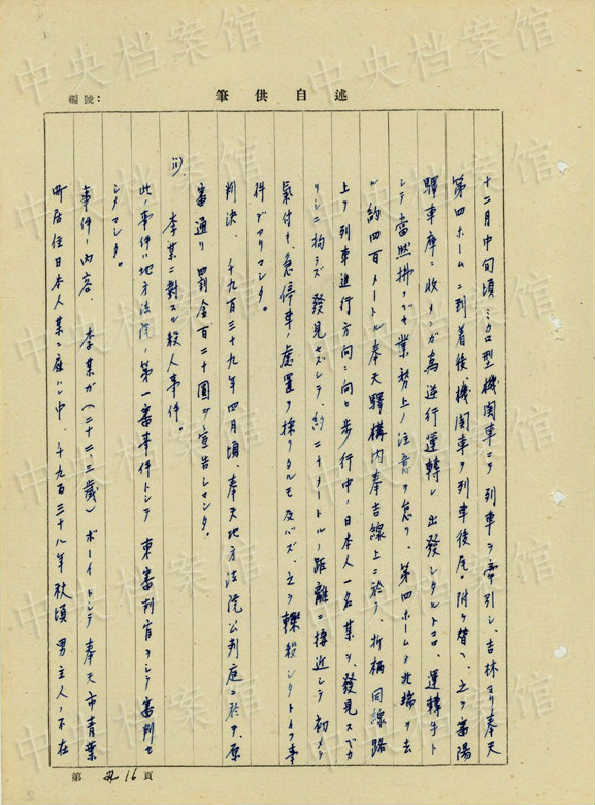 述自供筆
編號：
十二月中旬頃ミカロ型機関車ニヲ列車ヲ牽引シ、吉林ヨリ奉天
第四ホームニ到着後機関車ヲ列車後尾ニ附ケ替ヘ、之ヲ瀋陽
驛車庫ニ收メンガ為逆行運轉シ出發シタルトコロ、運轉手ト
シテ當然拂フベキ業務上ノ注意ヲ怠リ、第四ホームヲ北端ヲ去
ル約四百メートル奉天驛構内奉吉線上ニ於テ、折柄同線路
上ヲ列車進行方向ニ向ヒ歩行中ノ日本人一名某ヲ、發見スベカ
リシニ拘ラズ發見セズシテ、約二十メートルノ距離ニ接近シテ初メテ
氣付キ、急停車ノ處置ヲ採リタルモ及バズ、之ヲ轢殺シタトイフ事
件デアリマシタ。
判決、一千九百三十九年四月頃、奉天地方法院公判庭ニ於テ、原
審通リ罰金百二十圓ヲ宣告シマシタ。
ii) 李某ニ對スル殺人事件。
此ノ事件ハ地方法院ノ第一審事件トシテ東審判官ヲシテ審判セ
シメマシタ。
事件ノ内容、李某ガ（二十二、三歳）ボーイトシテ奉天市青葉
町居住日本人某ニ雇ハレ中、一千九百三十八年秋頃男主人ノ不在
第 16 頁
中央档案馆
中央档案馆
中央档案馆
中央档案馆
中央档案馆
中央档案馆
中央档案馆
中央档案馆